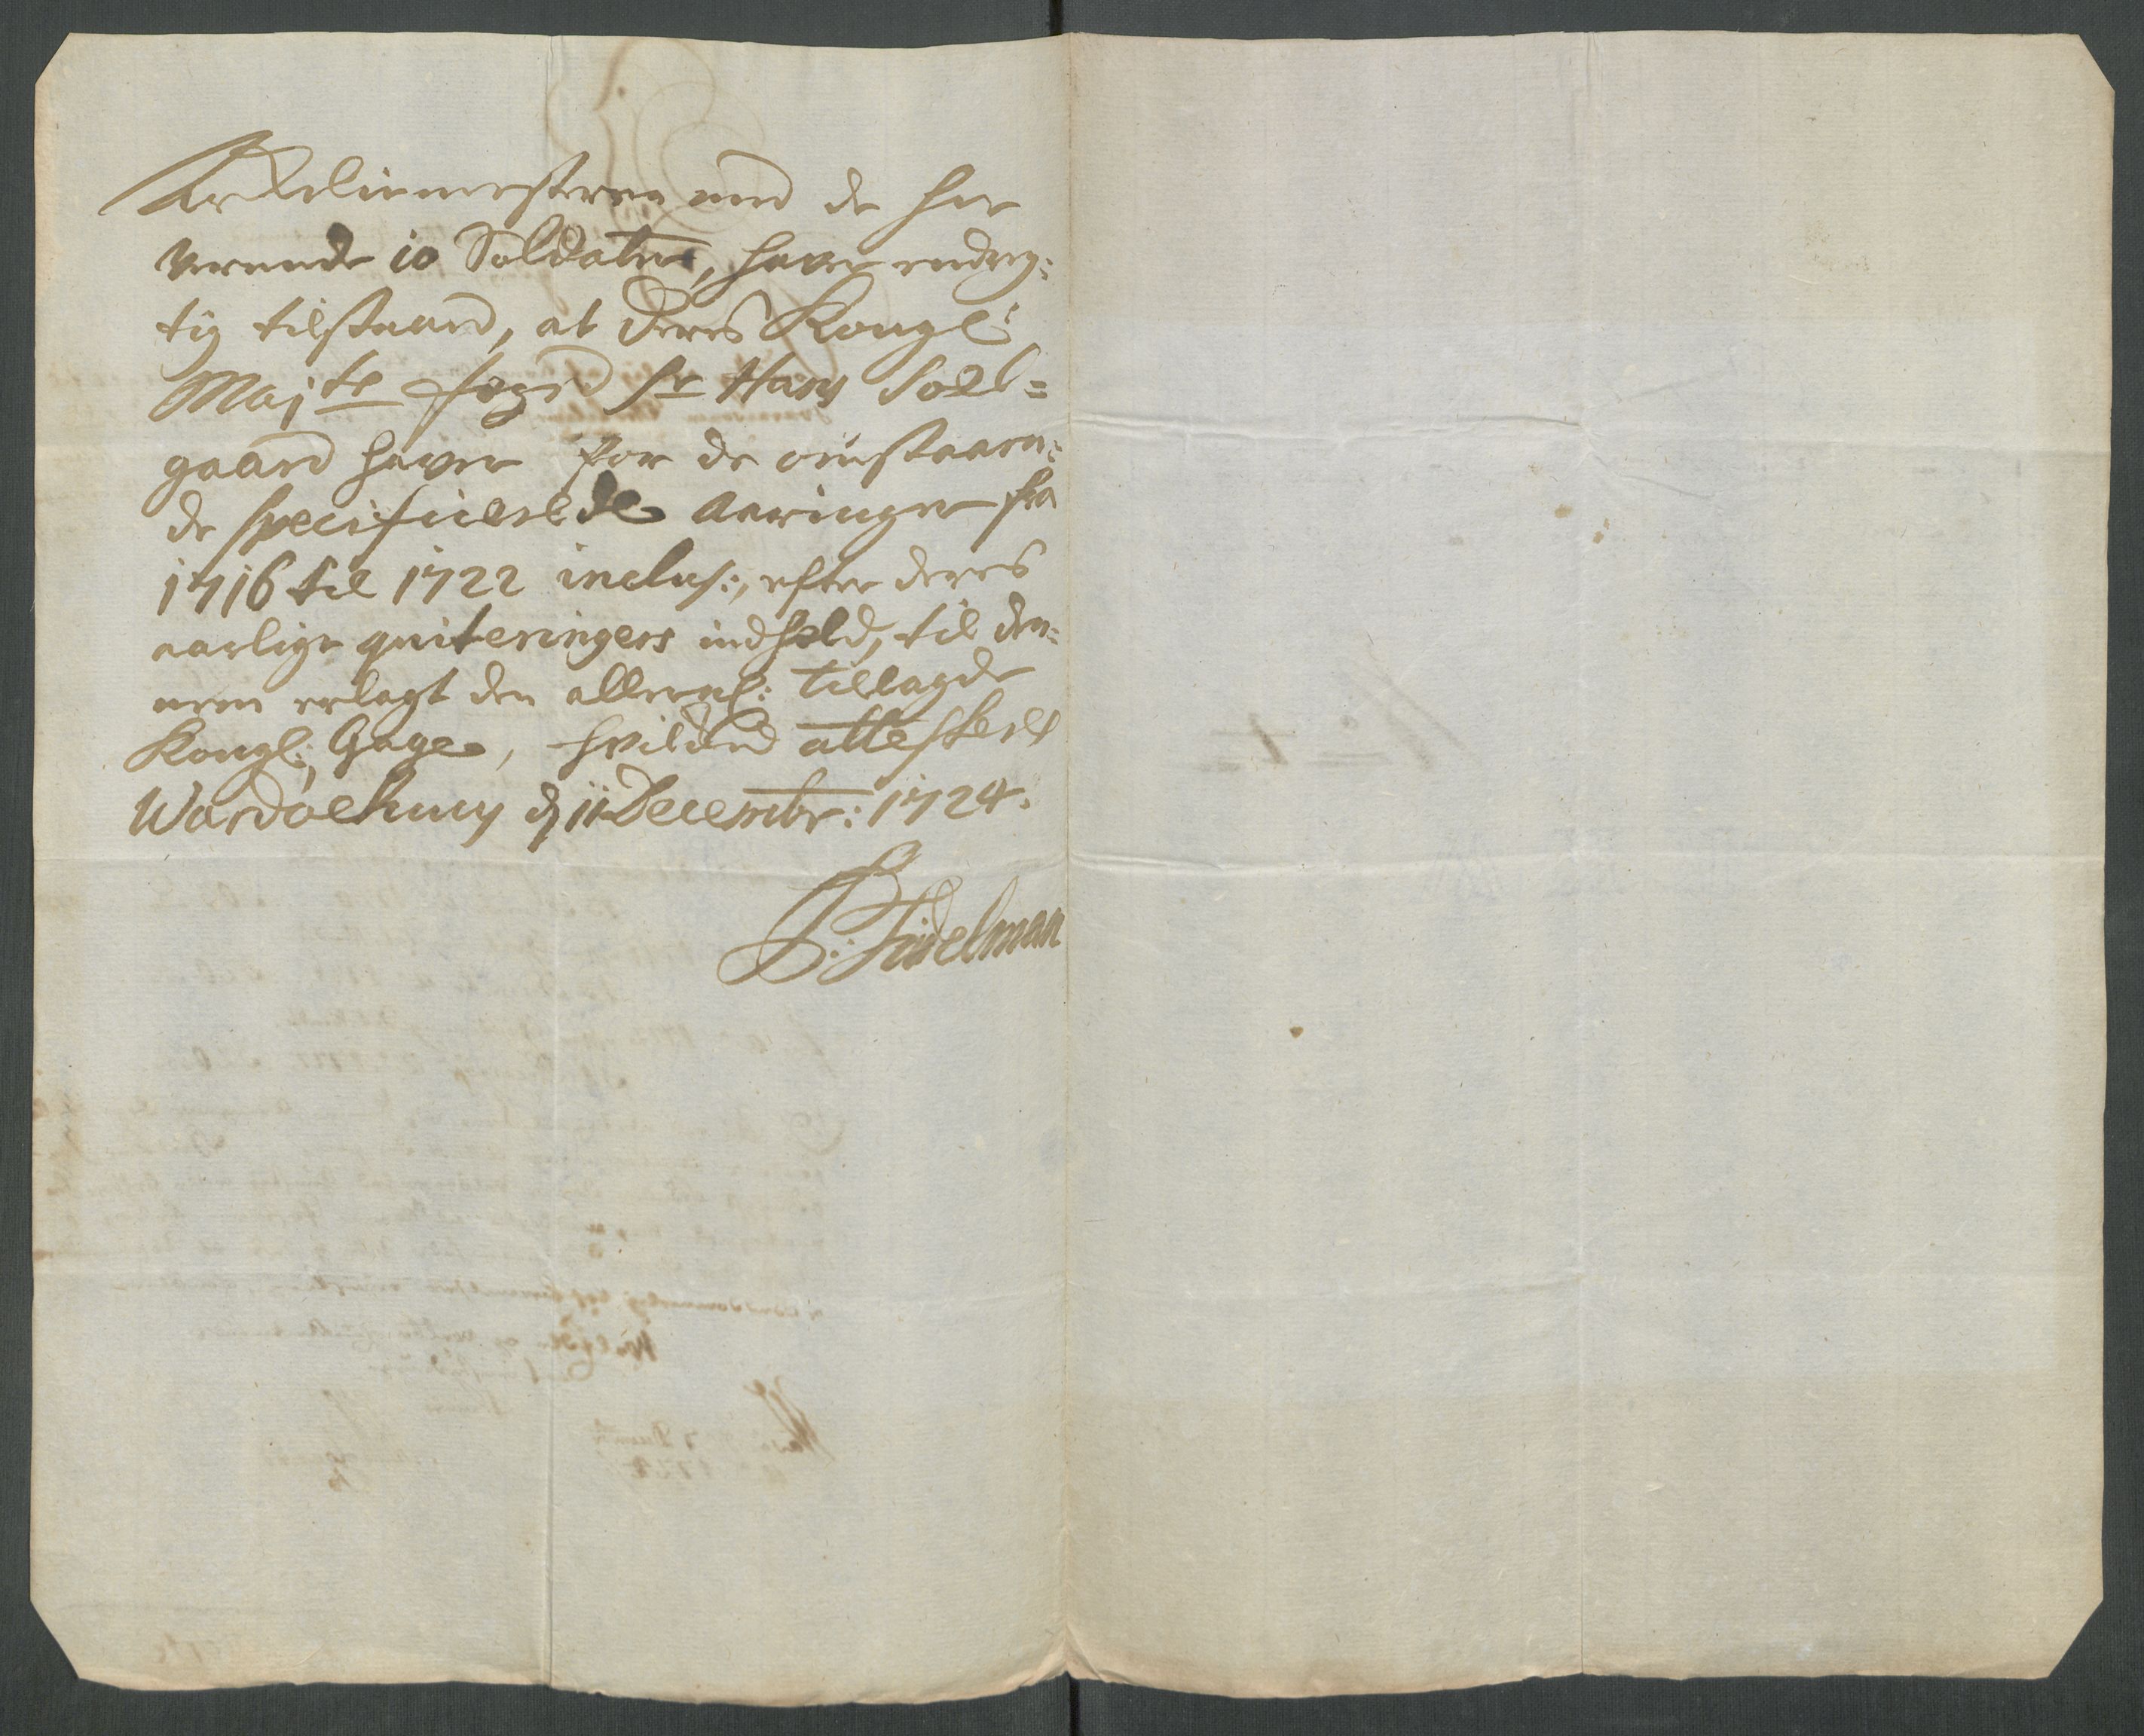 Arkeliemesteren med de her
verende 10 Soldater, haver endreg:
tig tilstaaed, at deres Kongl:
Majts foged Sr Hans Soel=
gaard haver for de omstaaen:
de specificerede Aaringer fra
1716 til 1722 inclus:, efter deres
aarlige qviteringers indhold, til den:
nem erlagt den allern: tillagde
Kongl: Gage, hvilded atteskeres
Wardöehuus d 11 Decembr: 1724.